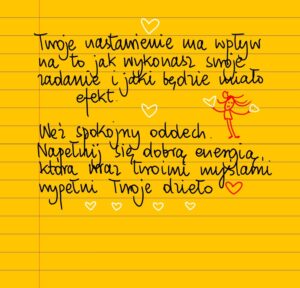 Twoje nastawienie ma wpływ
na to jak wykonasz swoje
zadanie i jaki będzie miało
efekt.
Weź spokojny oddech.
Napełnij się dobrą energią,
która wraz Twoimi myślami
wypełni Twoje dzieło